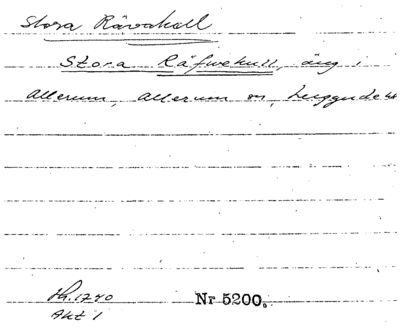 Stora Rävakull
Stora Räfwekull, äng i
Allerum, Allerum sn, Luggude hd
Nr 5200.
Akt 1